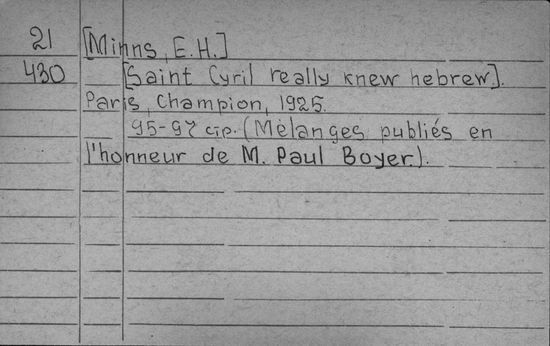 21 [Minns, E.H.]
430 [Saint Cyril really knew hebrew].
Paris, Champion, 1925.
95-97 стр. (Mélanges publiés en
l'honneur de M. Paul Boyer).